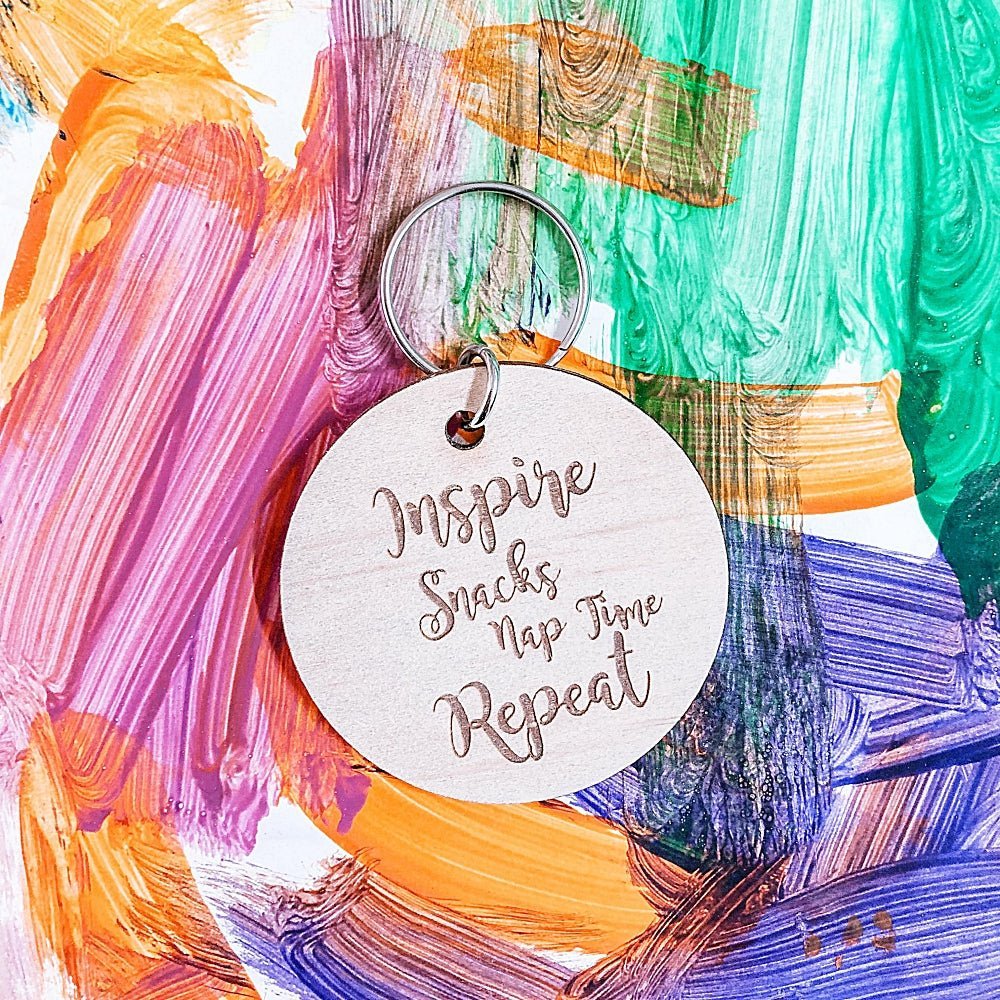 Inspire
Snacks
Nap Time
Repeat